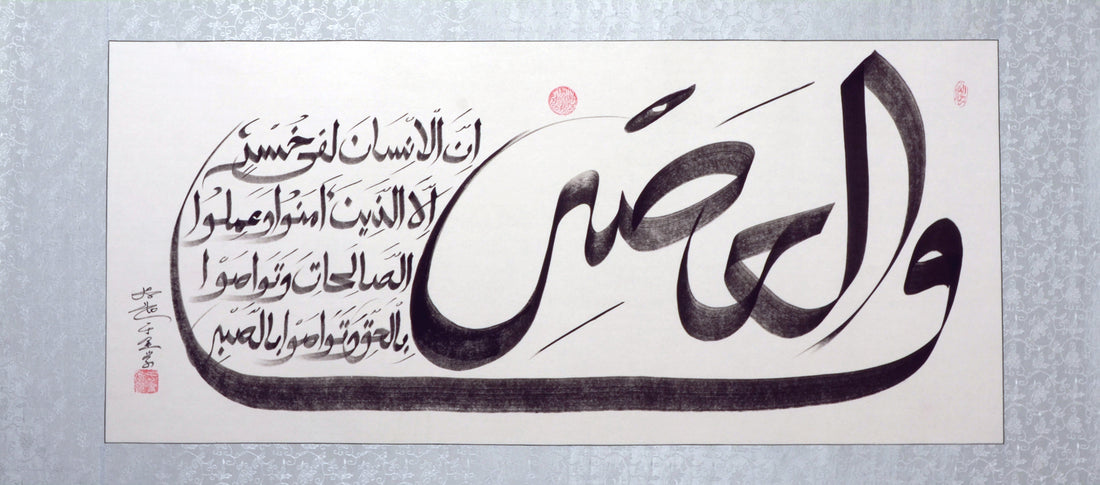 والعصر
ان الانسان لفى خسر
الا الذين امنوا وعملوا
الصالحات وتواصوا
بالحق وتواصوا بالصبر